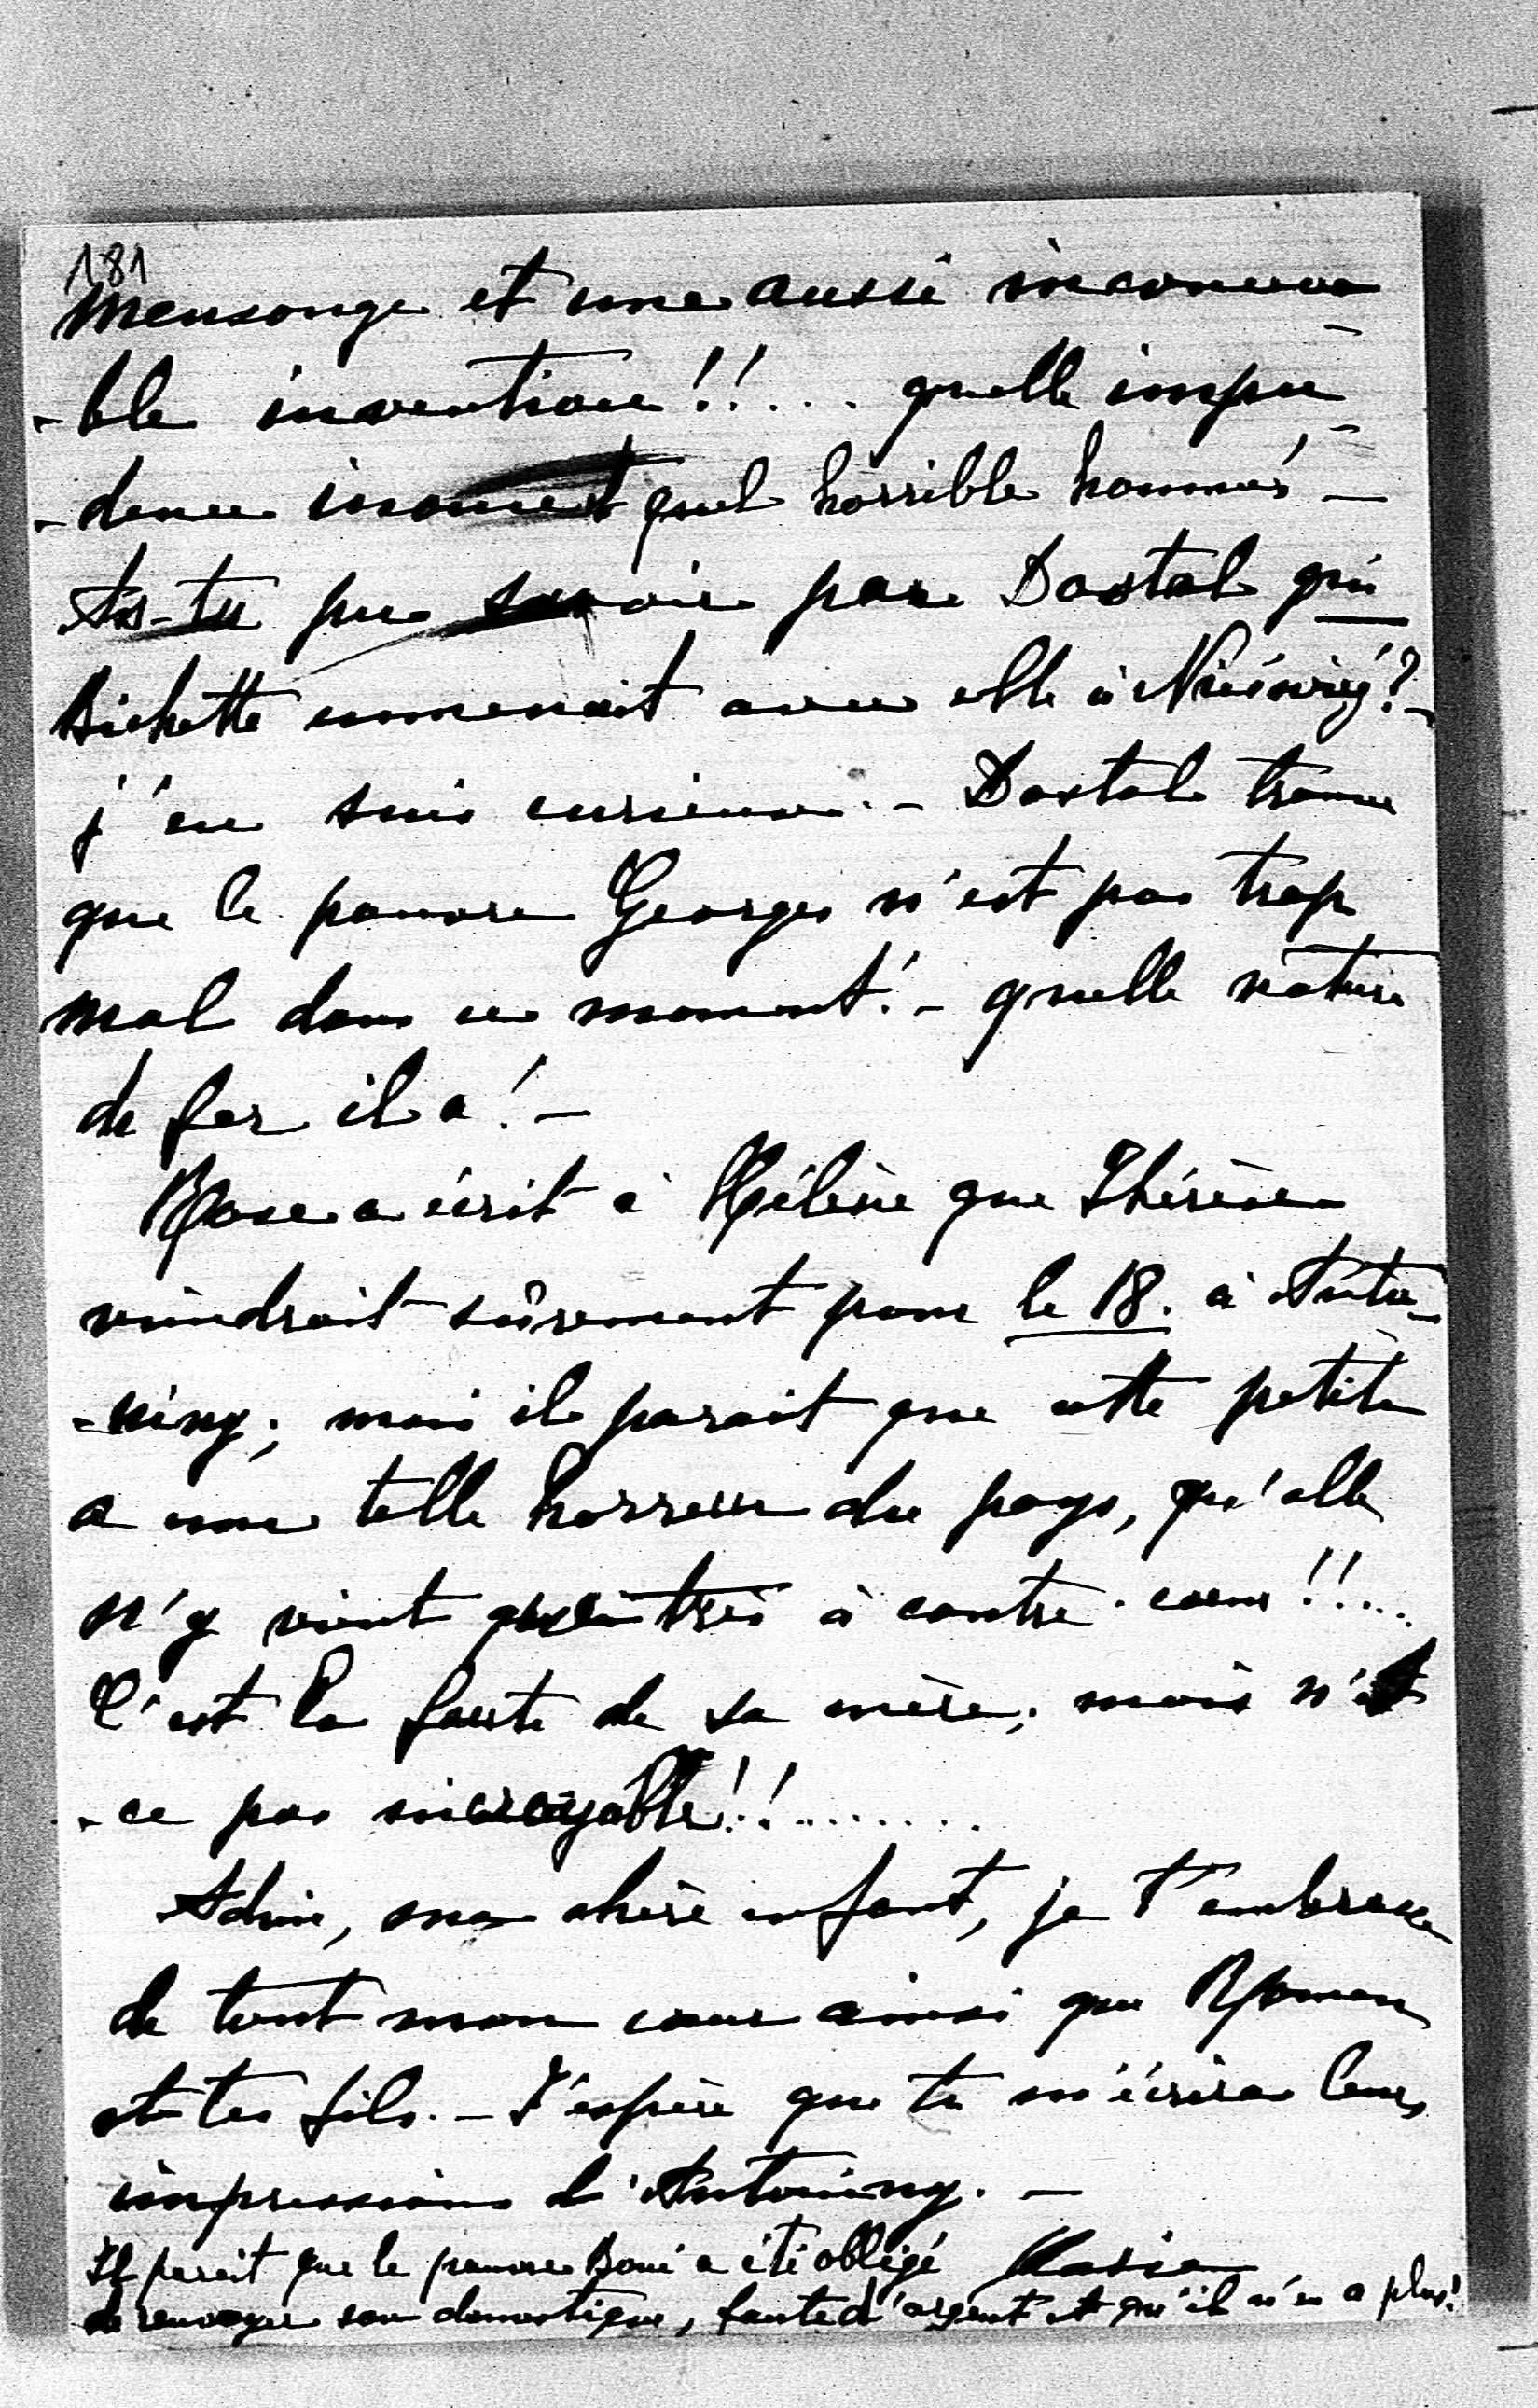 181
mensonge et une aussi inconceva
-ble invention!!.... quelle impu-
-dence inouie et quel horrible homme! -
As-tu pu savoir par Dostal qui
Bichette emmenait avec elle à Nieśwież? -
j'en suis curieuse. - Dostal trouve
que le pauvre Georges n'est pas trop
mal dans ce moment! - quelle nature
de fer il a! -
Rose a écrit à Hélène que Thérèse
viendrait sûrement pour le 18. à Anto-
-niny; mais il parait que cette petite
a une telle horreur du pays, qu'elle
n'y vient que très à contre-coeur!!....
C'est la faute de sa mère; mais n'est
-ce pas incroyable!!........
Adieu, ma chère enfant, je t'embrasse
de tout mon coeur ainsi que Roman
et tes fils. - J'espère que tu m'écriras leurs
impressions d'Antoniny. -
Il parait que le pauvre Boni a été obligé Maria
de renvoyer son domestique, faute d'argent et qu'il n'en a plus!